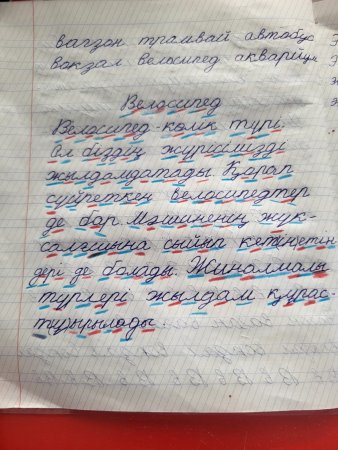 вагзон трамвай автобус
вокзал велосипед аквариум
Велосипед
Велосипед-көлік түрі.
Ол біздің жүрісімізді
жылдамдатады. Қарап
сүйреткен велосипедтер
де бар. Машиненің жүк-
салғышына сыйып кететін
дері де болады. Жиналмалы
түрлері жылдам құрас-
тырылады.